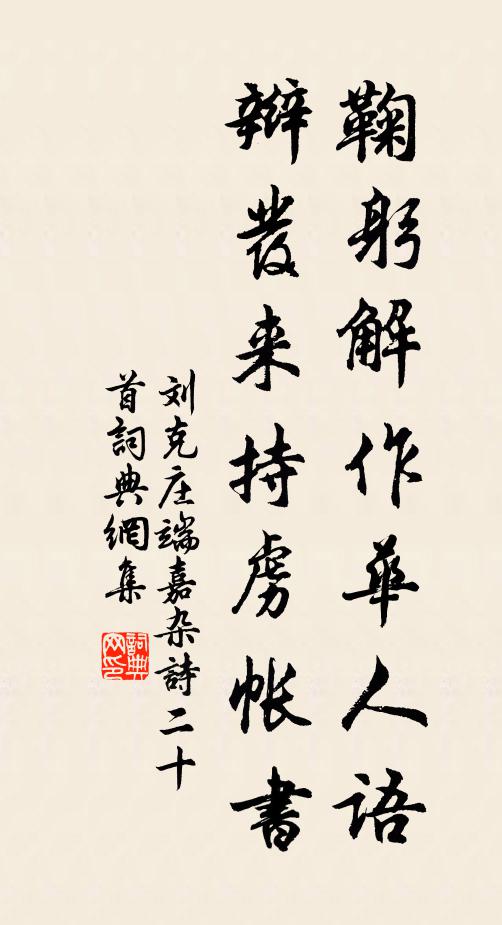 鞠躬解作華人語
辮发来持虜帳書
刘克庄端嘉杂詩二十
首詞典網集
詞典網印